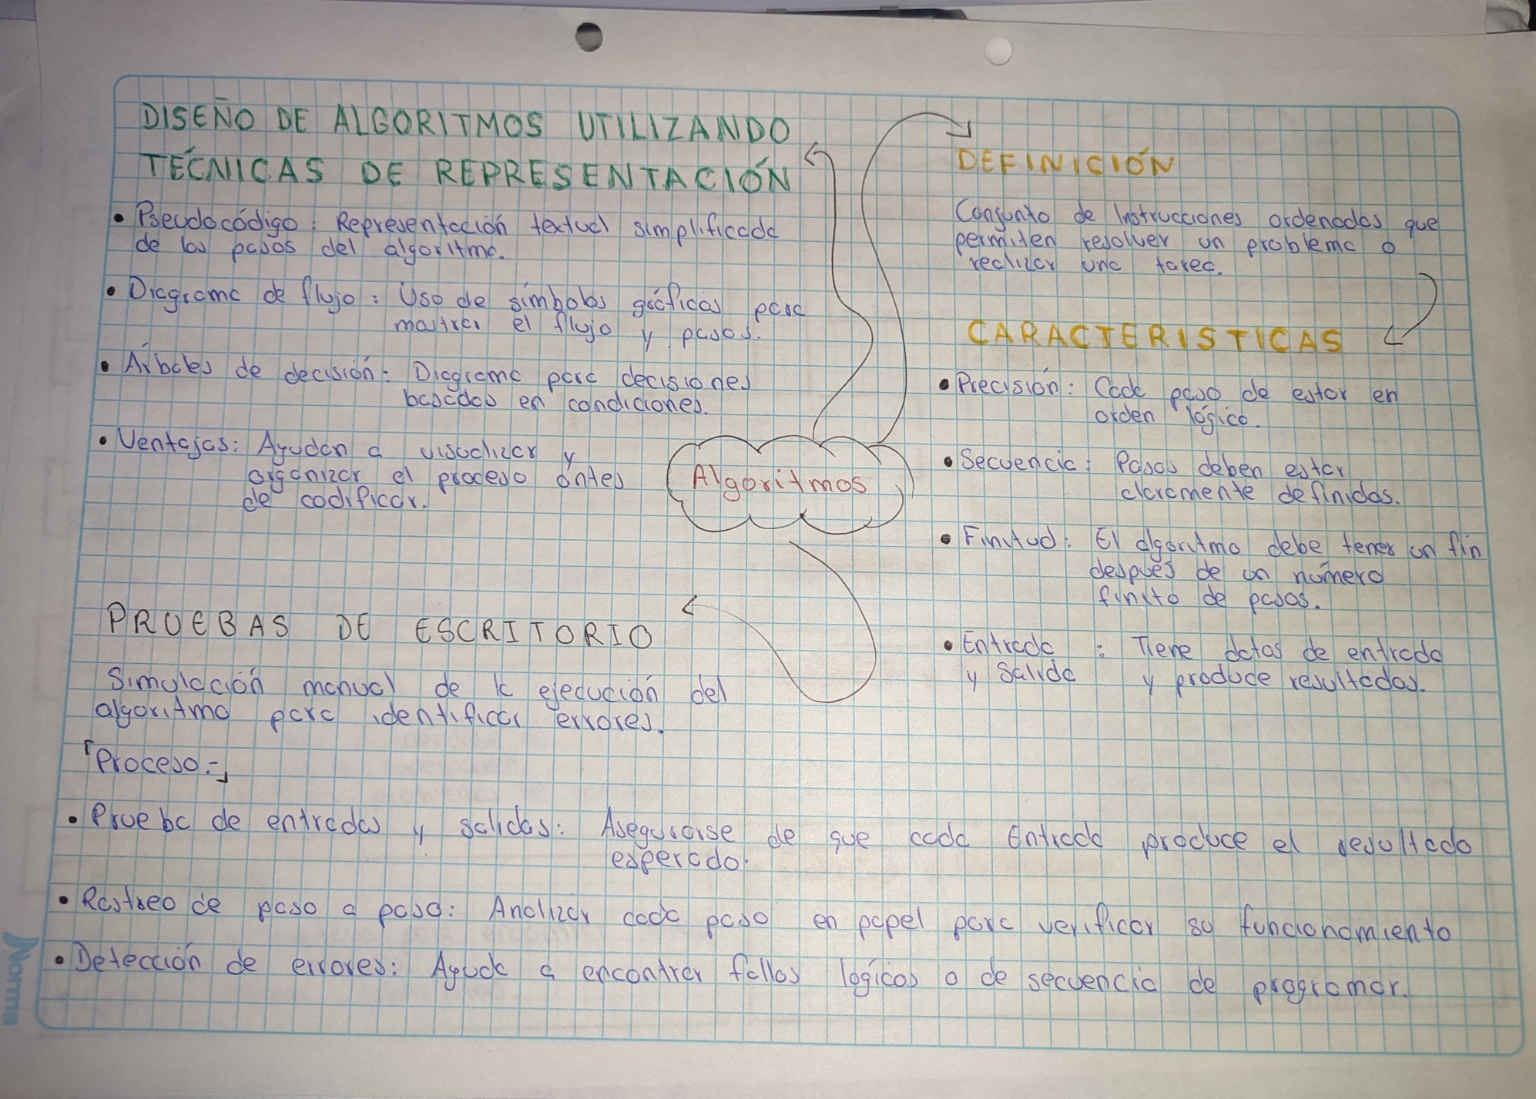 DISEÑO DE ALGORITMOS UTILIZANDO
TÉCNICAS DE REPRESENTACIÓN
• Pseudocódigo: Representación textual simplificada
de los pasos del algoritmo.
• Diagrama de flujo: Uso de símbolos gráficos para
mostrar el flujo y pasos.
• Árboles de decisión: Diagrama para decisiones
basadas en condiciones.
• Ventajas: Ayudan a visualizar y
organizar el proceso antes
de codificar.
Algoritmos
DEFINICIÓN
Conjunto de Instrucciones ordenadas que
permiten resolver un problema o
realizar una tarea.
CARACTERISTICAS
• Precisión: Cada paso de estar en
orden lógico.
• Secuencia: Pasos deben estar
claramente definidas.
• Finitud: El algoritmo debe tener un fin
después de un número
finito de pasos.
• Entrada : Tiene datos de entrada
y Salida y produce resultados.
PRUEBAS DE ESCRITORIO
Simulación manual de la ejecución del
algoritmo para identificar errores.
「Proceso:」
• Prueba de entradas y salidas: Asegurarse de que cada Entrada produce el resultado
esperado.
• Rastreo de paso a paso: Analizar cada paso en papel para verificar su funcionamiento
• Detección de errores: Ayuda a encontrar fallos lógicos o de secuencia de programar.
Norma